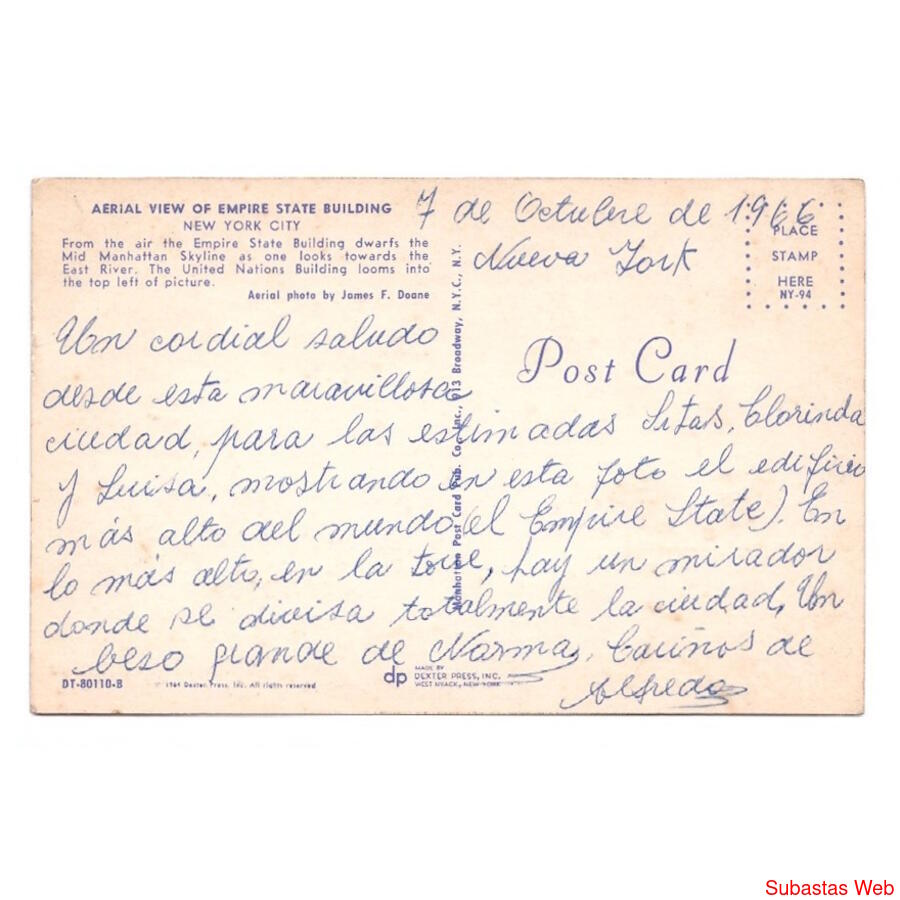 AERIAL VIEW OF EMPIRE STATE BUILDING
NEW YORK CITY
From the air the Empire State Building dwarfs the
Mid Manhattan Skyline as one looks towards the
East River. The United Nations Building looms into
the top left of picture.
Aerial photo by James F. Doane
7 de Octubre de 1966
Nueva York
PLACE
STAMP
HERE
NY-94
Post Card
Un cordial saludo
desde esta maravillosa
ciudad, para las estimadas Sitas, Clorinda
y Luisa, mostrando en esta foto el edificio
más alto del mundo (el Empire State). En
lo más alto, en la torre, hay un mirador
donde se divisa totalmente la ciudad, Un
beso grande de Norma, Cariños de
Alfredo
Manhattan Post Card Pub. Co., Inc., 913 Broadway, N.Y.C., N.Y.
DT-80110-B
1964 Dexter Press, Inc. All rights reserved
dp
MADE BY
DEXTER PRESS, INC.
WEST NYACK, NEW YORK
Subastas Web